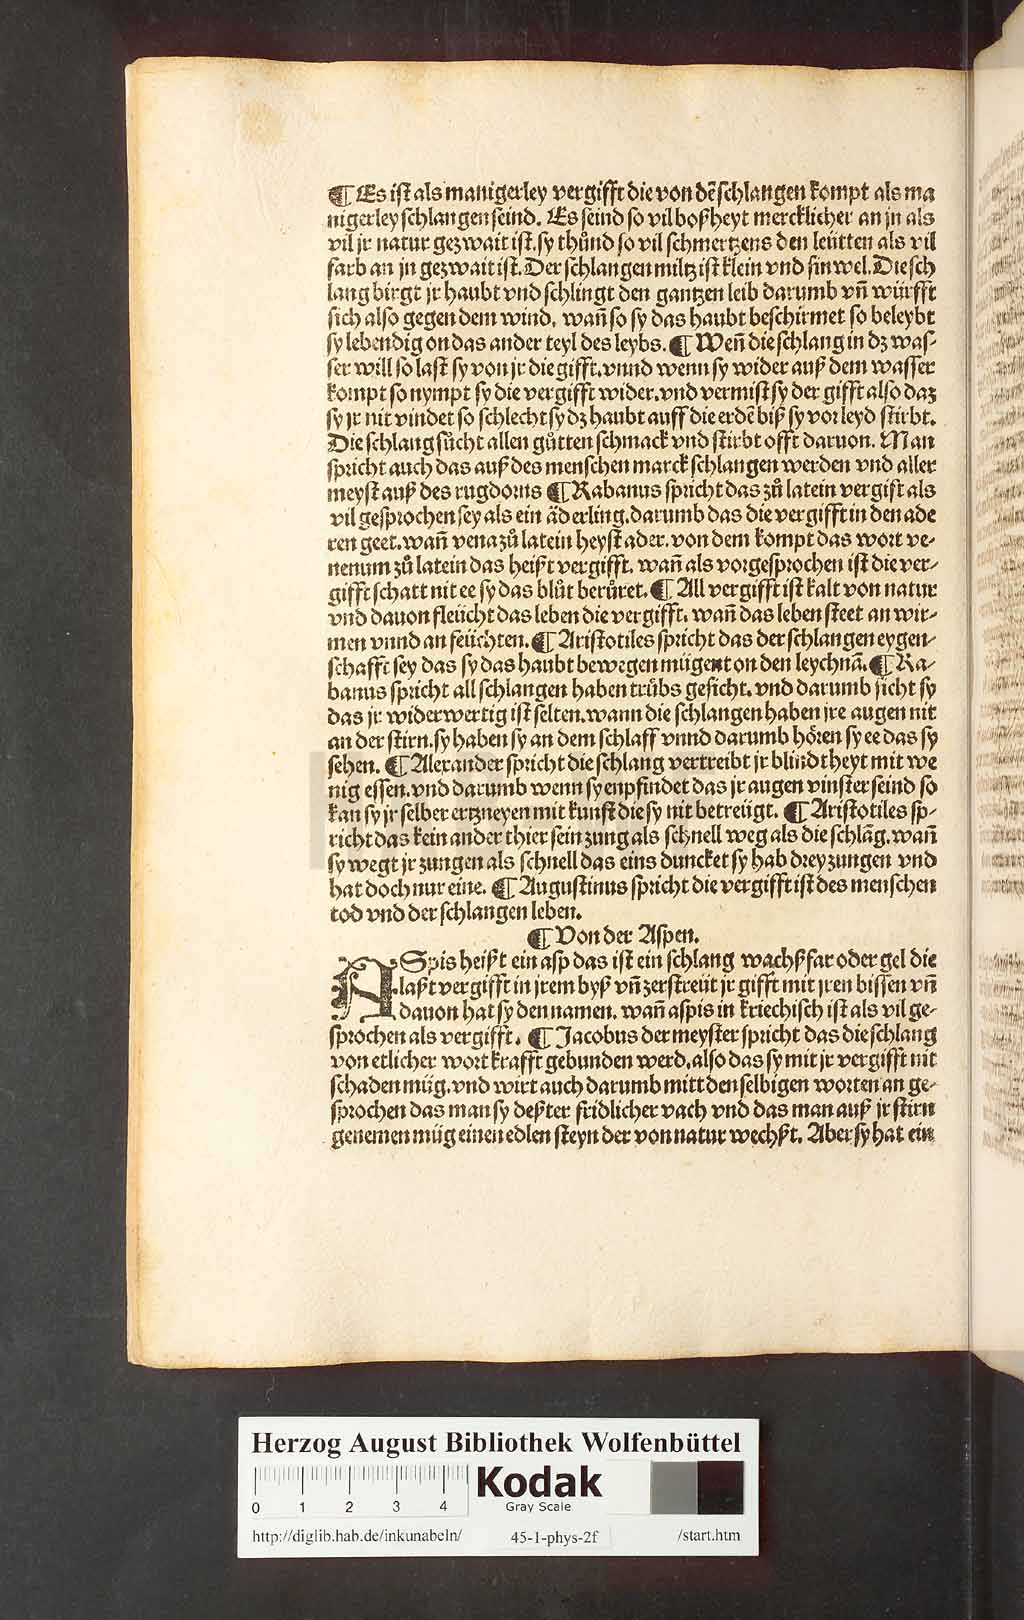 ¶ Es ist als manigerley vergifft die von dē schlangen kompt als ma
nigerley schlangen seind. Es seind so vil boßheyt mercklicher an jn als
vil jr natur gezwait ist. sy thůnd so vil schmertzens den leütten als vil
farb an jn gezwait ist. Der schlangen miltz ist klein vnd sinwel. Die sch
lang birgt jr haubt vnd schlingt den gantzen leib darumb vn̄ würfft
sich also gegen dem wind, wan̄ so sy das haubt beschirmet so beleybt
sy lebendig on das ander teyl des leybs. ¶ Wen̄ die schlang in dz was-
ser will so last sy von jr die gifft. vnnd wenn sy wider auß dem wasser
kompt so nympt sy die vergifft wider. vnd vermist sy der gifft also daz
sy jr nit vindet so schlecht sy dz haubt auff die erdē biß sy vor leyd stirbt.
Die schlang sůcht allen gůtten schmack vnd stirbt offt daruon. Man
spricht auch das auß des menschen marck schlangen werden vnd aller
meyst auß des rugdorns ¶ Rabanus spricht das zů latein vergift als
vil gesprochen sey als ein äderling. darumb das die vergifft in den ade
ren geet. wan̄ vena zů latein heyst ader. von dem kompt das wort ve-
nenum zů latein das heißt vergifft. wan̄ als vorgesprochen ist die ver-
gifft schatt nit ee sy das blůt berůret. ¶ All vergifft ist kalt von natur
vnd dauon fleücht das leben die vergifft. wan̄ das leben steet an wir-
men vnnd an feüchten. ¶ Aristotiles spricht das der schlangen eygen-
schafft sey das sy das haubt bewegen mügent on den leychnā. ¶ Ra-
banus spricht all schlangen haben trůbs gesicht. vnd darumb sicht sy
das jr widerwertig ist selten. wann die schlangen haben jre augen nit
an der stirn. sy haben sy an dem schlaff vnnd darumb hören sy ee das sy
sehen. ¶ Alexander spricht die schlang vertreibt jr blindtheyt mit we
nig essen. vnd darumb wenn sy enpfindet das jr augen vinster seind so
kan sy jr selber ertzneyen mit kunst die sy nit betreügt. ¶ Aristotiles sp-
richt das kein ander thier sein zung als schnell weg als die schlāg. wan̄
sy wegt jr zungen als schnell das eins duncket sy hab drey zungen vnd
hat doch nur eine. ¶ Augustinus spricht die vergifft ist des menschen
tod vnd der schlangen leben.
¶ Von der Aspen.
ASpis heißt ein asp das ist ein schlang wachßfar oder gel die
laßt vergifft in jrem byß vn̄ zerstreüt jr gifft mit jren bissen vn̄
dauon hat sy den namen. wan̄ aspis in kriechisch ist als vil ge-
sprochen als vergifft. ¶ Jacobus der meyster spricht das die schlang
von etlicher wort krafft gebunden werd. also das sy mit jr vergifft nit
schaden müg. vnd wirt auch darumb mitt den selbigen worten an ge-
sprochen das man sy deßter fridlicher vach vnd das man auß jr stirn
genemen müg einen edlen steyn der von natur wechßt. Aber sy hat ein
Herzog August Bibliothek Wolfenbüttel
0 1 2 3 4 Kodak
Gray Scale
http://diglib.hab.de/inkunabeln/ 45-1-phys-2f /start.htm